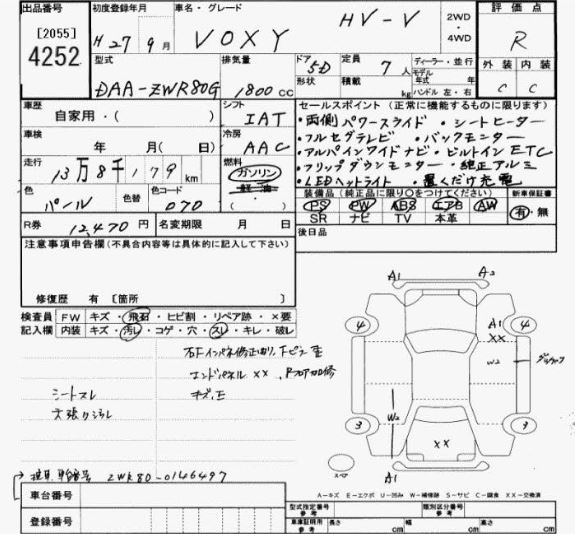 出品番号
[2055]
4252
初度登録年月
H27年9月
車名・グレード
VOXY HV-V
2WD
・
4WD
評価点
R
外装 内装
C C
型式
DAA-ZWR80G
排気量
1800cc
ドア 5D
形状
定員 7人
積載 kg
ディーラー・並行
モデル
年式 年
ハンドル 左・右
車歴
自家用・( )
シフト
IAT
車検
年 月( 日)
冷房
AAC
走行
13万8千179km
燃料
ガソリン
軽油
( )
色
パール
色替
色コード
070
R券
12,470円
名変期限 月 日
セールスポイント(正常に機能するものに限ります)
・両側パワースライド・シートヒーター
・フルセグテレビ・バックモニター
・アルパインワイドナビ・ビルトインETC
・フリップダウンモニター・純正アルミ
・LEDヘッドライト・置くだけ充電
装備品(純正品に限り○をつけてください)
PS PW ABS エアB AW
SR ナビ TV 本革
新車保証書
有・無
後日品
注意事項申告欄(不具合内容等は具体的に記入して下さい)
修復歴 有〔箇所 〕
検査員
記入欄
FW キズ・飛石・ヒビ割・リペア跡・×要
内装 キズ・汚レ・コゲ・穴・スレ・キレ・破レ
エンドパネルXX
シートスレ
車台番号
ZWR80-0146497
登録番号
A1 A2
4 4
A1
XX
W2
W2
3 3
XX
A1
スペア
A-キズ E-エクボ U-凹み W-補修跡 S-サビ C-腐食 XX-交換済
型式指定番号
参考
類別区分番号
参考
車庫証明用
参考
長さ cm 幅 cm 高さ cm